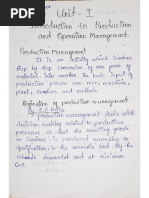 Unit - I
Introduction to Production
and Operation Management
Production Management
It is an activity which involves
step by step conversion of one form of
material into another the main input of
production process are men, machines,
plant, services and methods
Definition of production management
By
production management deals with
decision making related to production
processes so that the resulting goods
or services is produced according to
specification in the amounts and by the
schedule demanded and at minimum
Cost